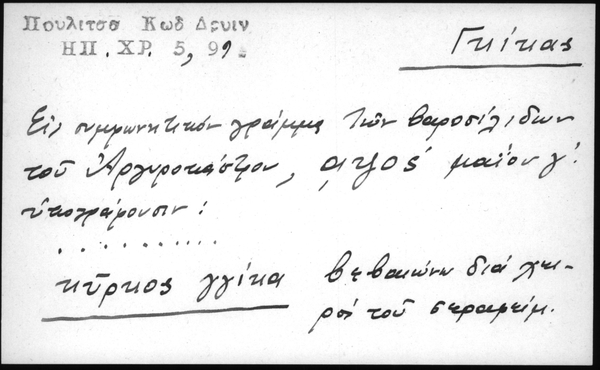 Πουλιτσα Κωδ Δρυιν
ΗΠ. ΧΡ. 5, 99
Γκίκας
Εἰς συμφωνητικόν γράμμα τῶν βαροσιλιδων
τοῦ Ἀργυροκάστρου, μαΐου γ'.
ὑπογράφουσιν:
. . . . . . . . . .
κῦρκος γγίκα βεβαιώνω διά χει-
ρός τοῦ σεραφείμ.